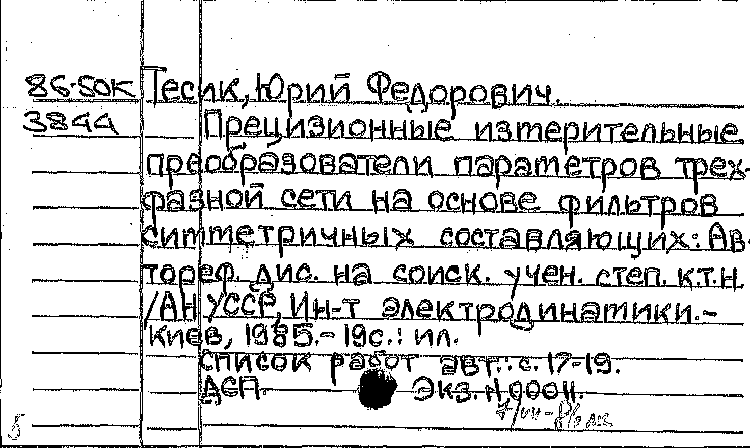 86-50К Тесик, Юрий Федорович.
3844 Прецизионные измерительные
преобразователи параметров трех-
фазной сети на основе фильтров
симметричных составляющих: Ав-
тореф. дис. на соиск. учен. степ. к.т.н.
/АН УССР, Ин-т электродинамики.-
Киев, 1985.-19с.: ил.
Список работ авт.: с. 17-19.
ДСП. Экз.